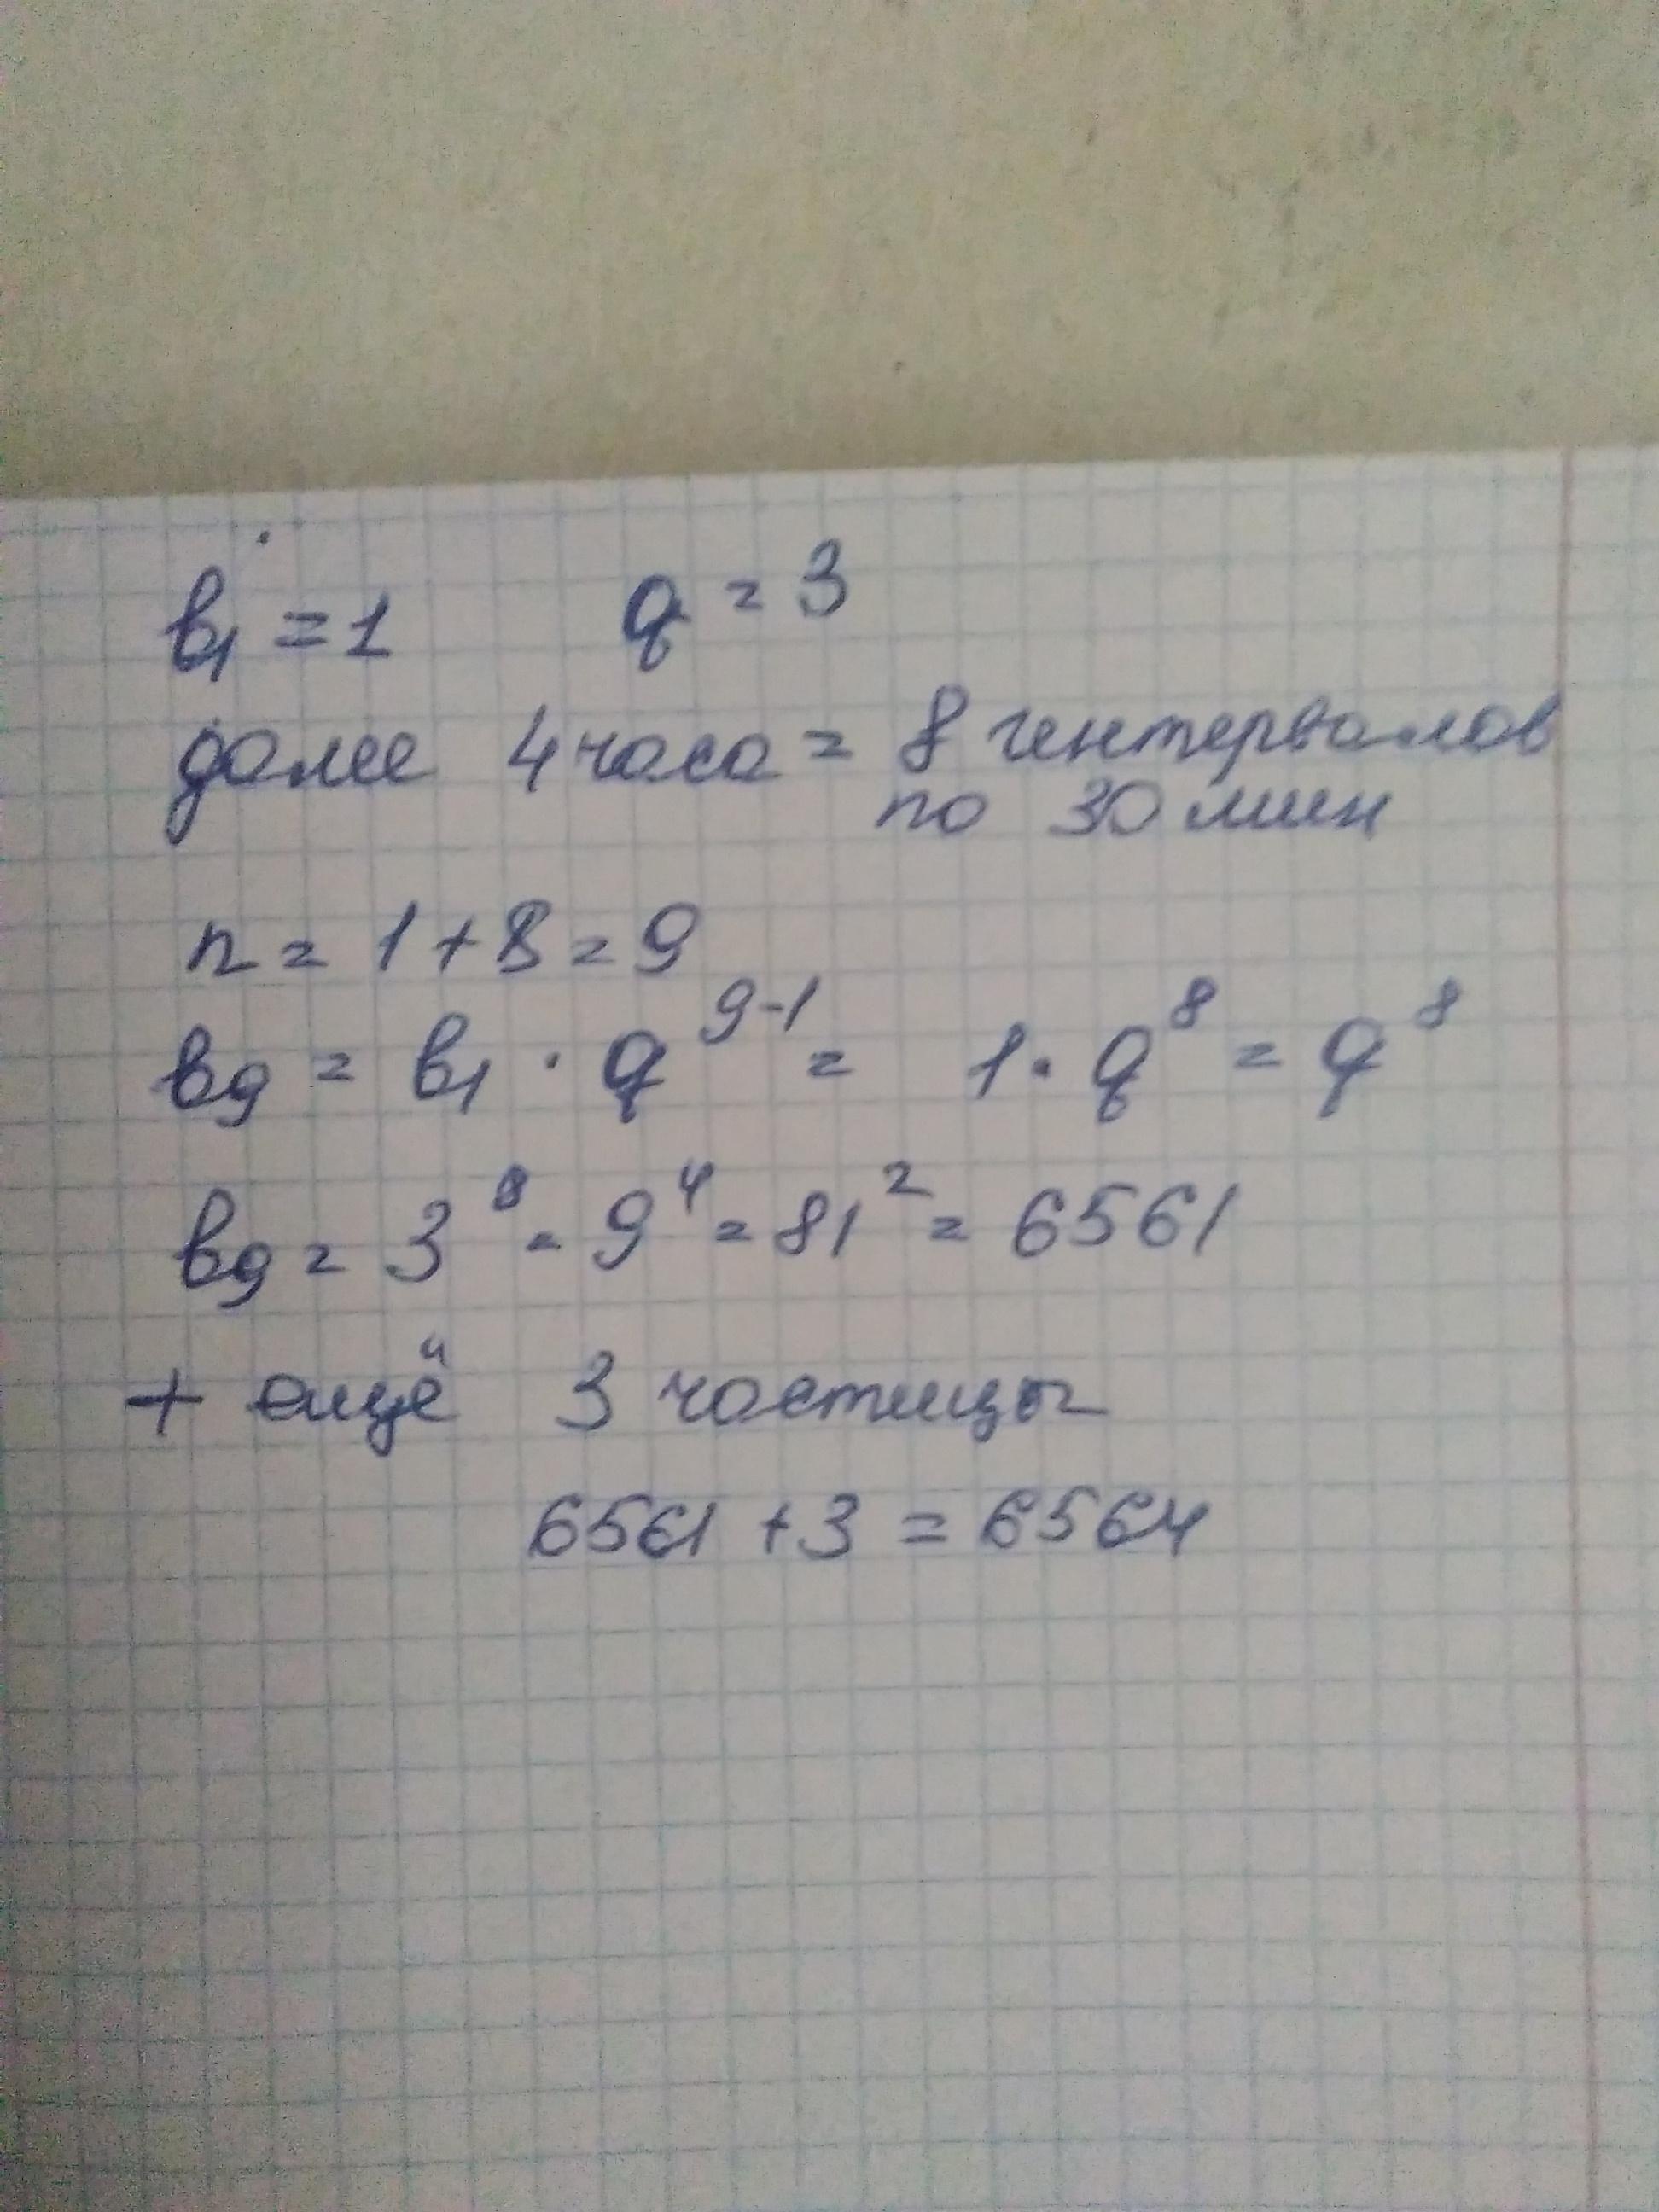 b₁ = 1 q = 3
далее 4 часа = 8 интервалов
по 30 мин
n = 1 + 8 = 9
b₉ = b₁ · q⁹⁻¹ = 1 · q⁸ = q⁸
b₉ = 3⁸ = 9⁴ = 81² = 6561
+ ещё 3 частицы
6561 + 3 = 6564